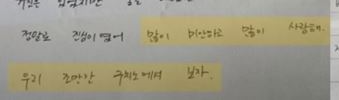 정말로 진심이였어 많이 미안하고 많이 사랑해.
우리 조만간 구치소에서 보자.